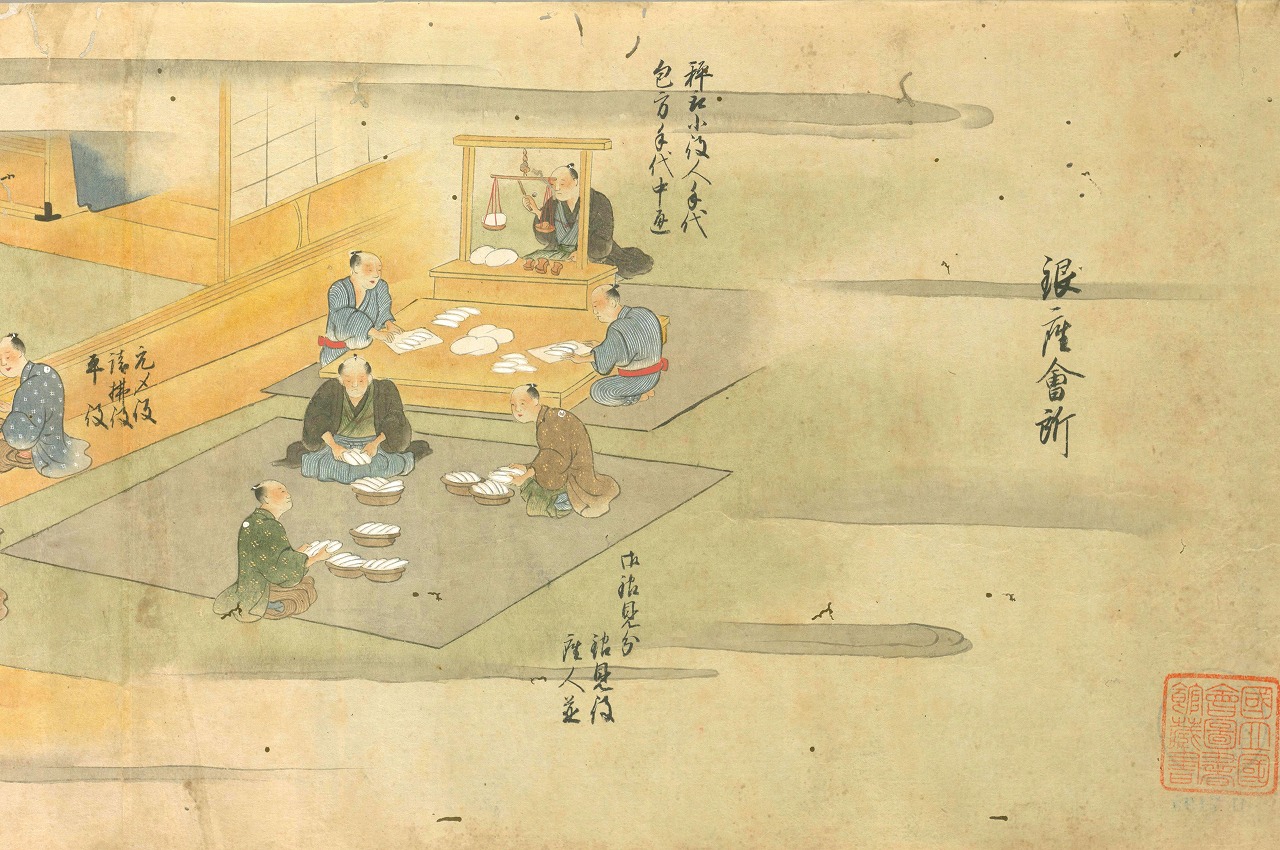 銀座會所
秤口小役人手代
包方手代中通
御銀見分
銀見役
座人並
元〆役
諸拂役
平役
國立國
會圖書
館藏書